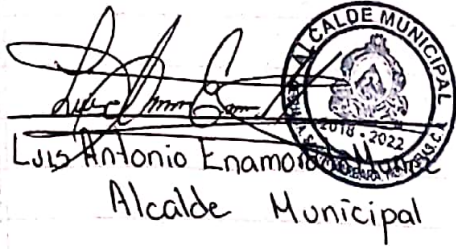 ALCALDE MUNICIPAL
2018 - 2022
Luis Antonio Enamorado
Alcalde Municipal